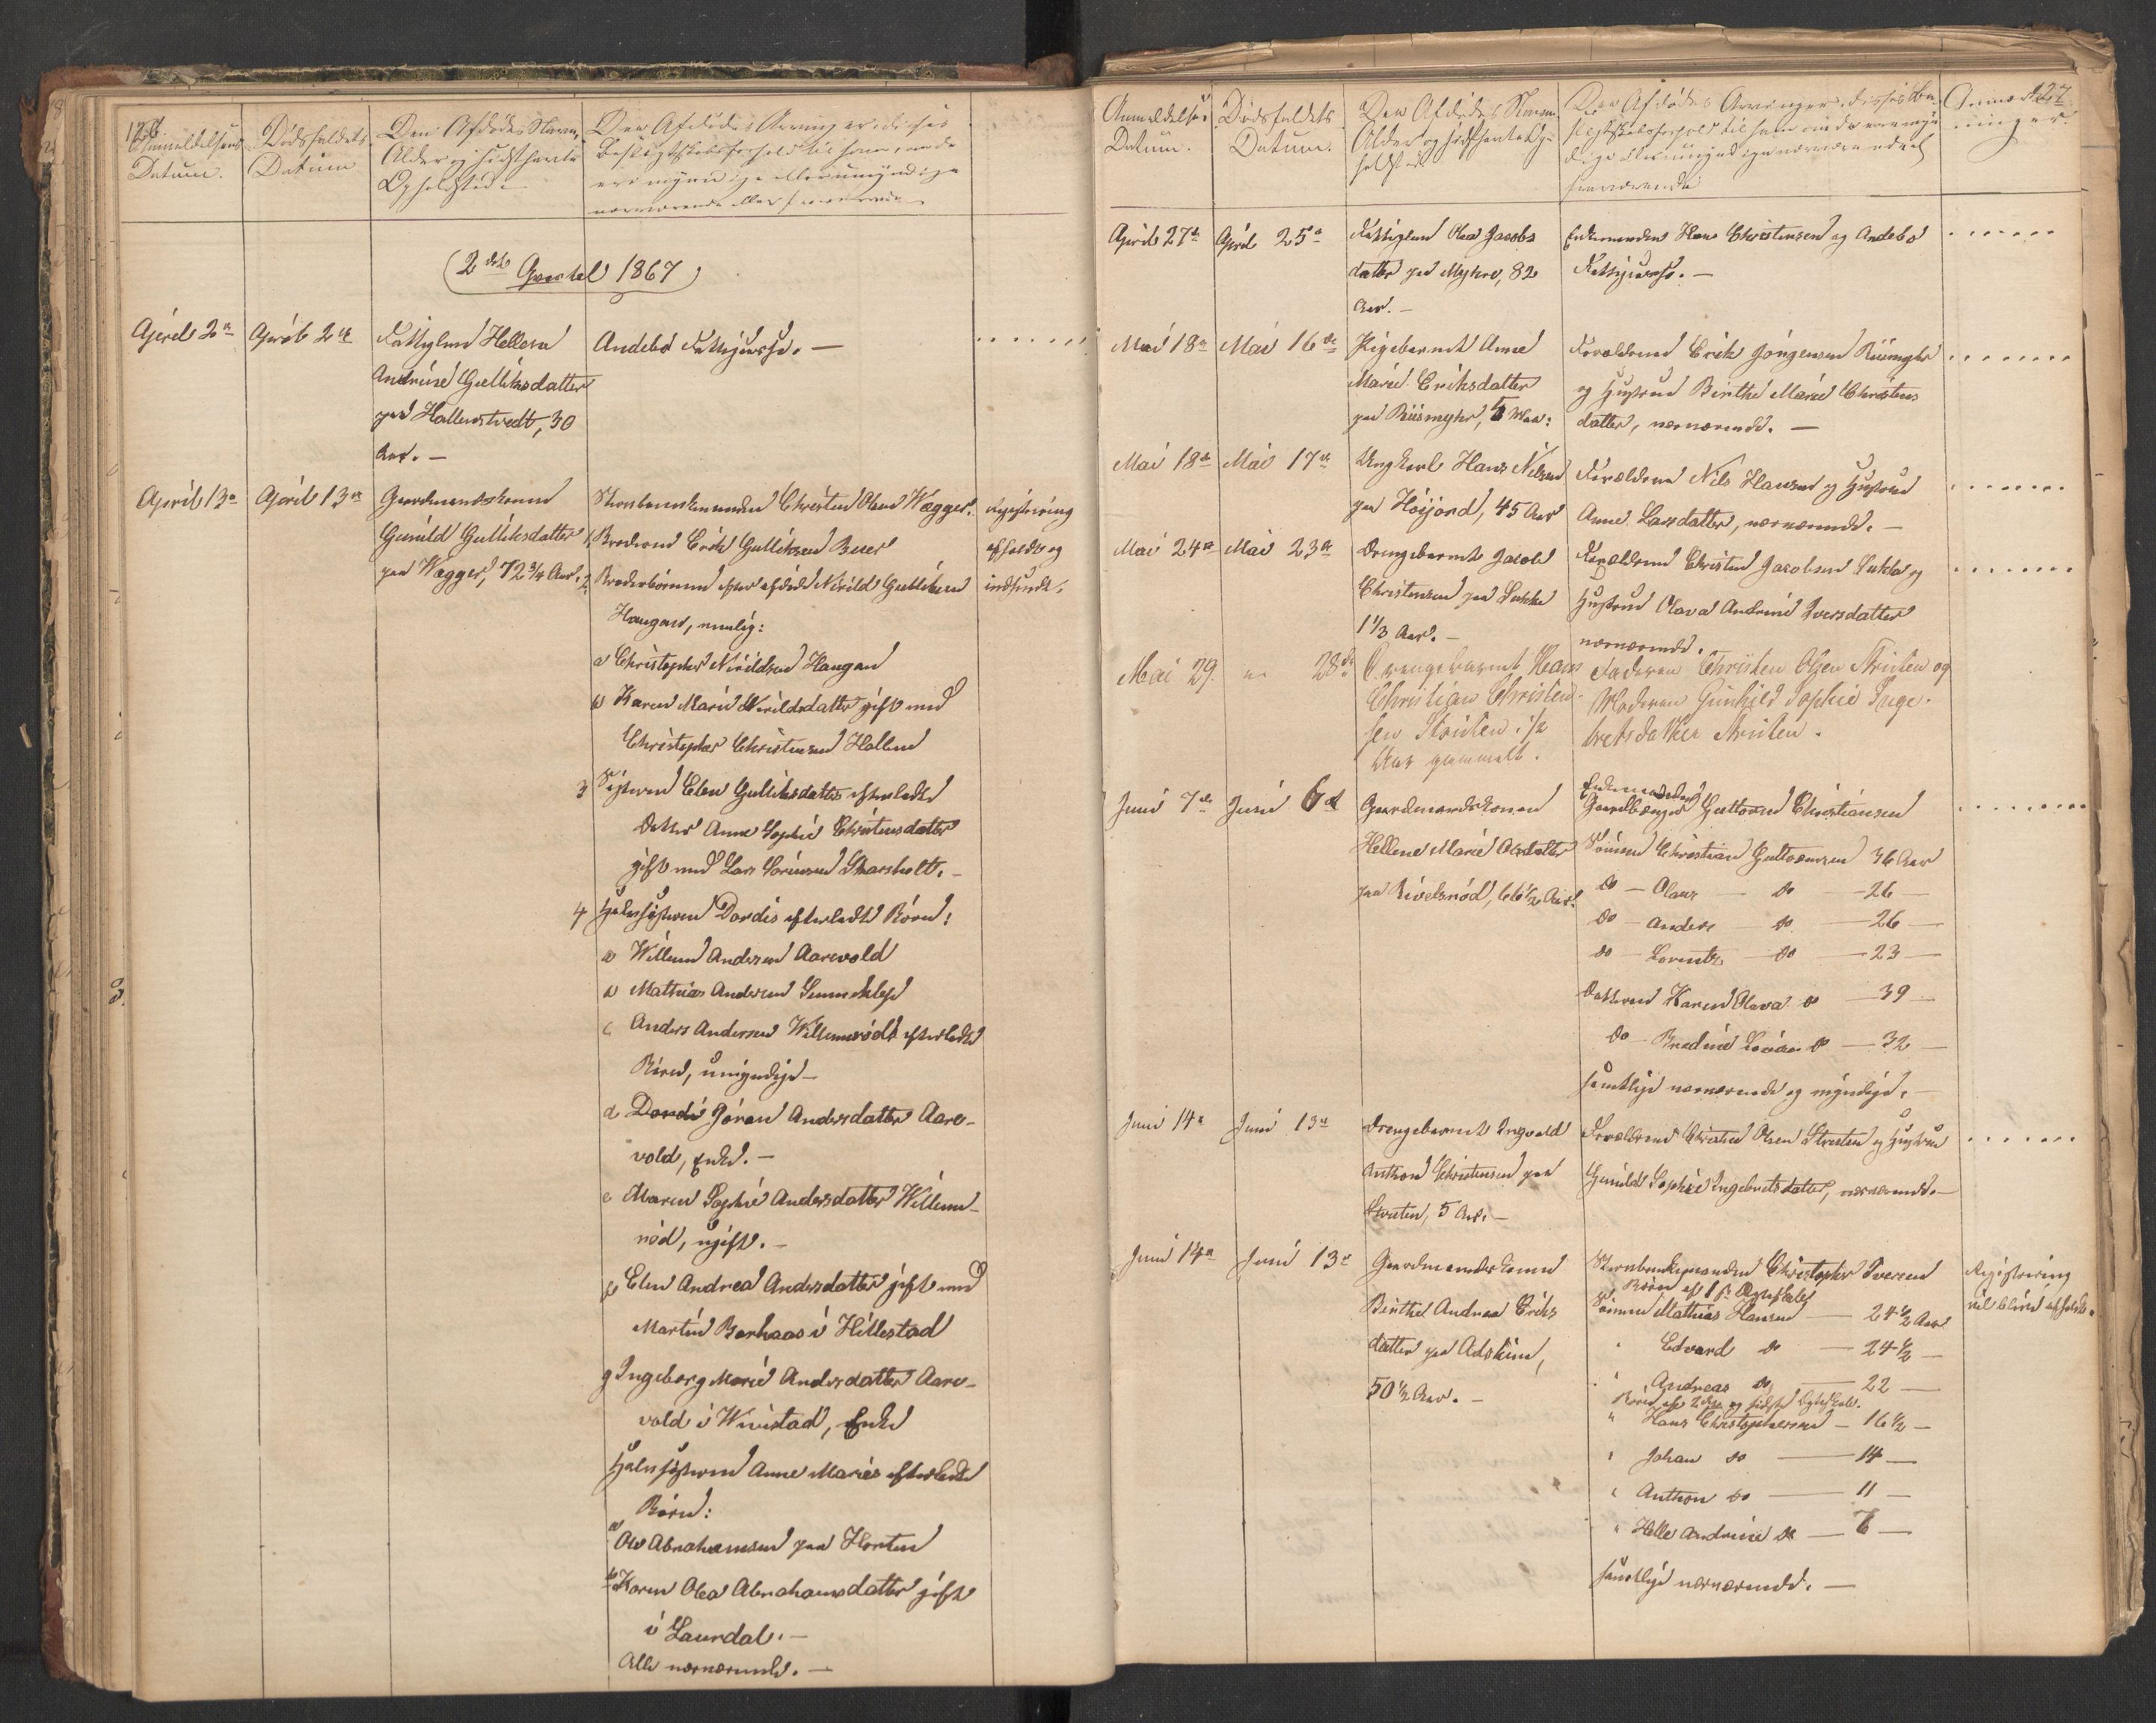 126
Anmeldelsens
Datum.
Dødsfaldets
Datum
Den Afdødes Navn,
Alder og sidst havte
Opholdsted
Den Afdødes Arvinger, disses
Beslægtskabsforhold til ham, om de
ere myndige eller umyndige
nærværende eller fraværende
(2det Qvartal 1867)
April 2de
April 2de
Fattiglem Hellene
Andrine Gulliksdatter
paa Hallenstvedt, 30
Aar. —
Andebo Fattigkasse. —
. . . . . .
April 13de
April 13de
Gaardmandskonen
Gunild Gulliksdatter
paa Wegger, 72 3/4 Aar.
Christen Olsen Wegger.
1, Broderen Erik Gulliksen Buer
2, Broderbørnene efter afdøde Nirild Gulliksen
Haugan, nemlig:
a Christopher Nirildsen Haugan
b Karen Marie Nirildsdatter gift med
Christopher Christensen Hallen
3 Søsteren Elen Gulliksdatters efterladte
Datter Anne Sophie Christensdatter
gift med Lars Sørensen Skarsholt. —
4 Halvsøsteren Dordis efterladte Børn:
a Willum Andersen Aarevold
b Mathias Andersen
c Anders Andersen Willumsrøds efterladte
Børn, umyndige —
d Dordi Jøran Andersdatter Aare-
vold, Enke. —
e Maren Sophie Andersdatter Willums-
rød, ugift. —
f Elen Andrea Andersdatter gift med
Martin Barkaas i Hillestad
g Ingeborg Marie Andersdatter Aare-
vold i Wivestad, Enke
Halvsøsteren Anne Maries efterladte
Børn:
a Ole Abrahamsen paa Horten
b Karen Olea Abrahamsdatter gift
i Laurdal. —
Alle nærværende. —
Registrering
afholdt og
indsendt.
127
Anmeldelsens
Datum.
Dødsfaldets
Datum.
Den Afdødes Navn
Alder og sidst havte Op-
holdsted
Den Afdødes Arvinger, disses Be-
slægtskabsforhold til ham om de ere myn-
dige eller umyndige nærværende eller
fraværende
Anmærk-
ninger.
April 27de
April 25de
Fattiglem Olea Jacobs
datter paa Myhre, 82
Aar. —
Enkemanden Hans Christensen og Andebo
Fattigkasse. —
. . . . . .
Mai 18de
Mai 16de
Pigebarnet Anne
Marie Eriksdatter
paa Riismyhr, 5 Maa:
Forældrene Erik Jørgensen Riismyhr
og Hustrue Birthe Marie Christens
datter, nærværende. —
. . . . . . .
Mai 18de
Mai 17de
Ungkarl Hans Nilsen
paa Høijord, 45 Aar
Forældrene Nils Hansen og Hustrue
Anne Larsdatter, nærværende. —
. . . . . . .
Mai 24de
Mai 23de
Drengebarnet Jacob
Christensen paa Lukke
1 1/3 Aar. —
Forældrene Christen Jacobsen Lukke og
Hustrue Olava Andrine Iversdatter
nærværende.
. . . . . . .
Mai 29.
" 28de
Drengebarnet Hans
Christian Christen-
sen Struten 1/2
Aar gammelt.
Faderen Christen Olsen Struten og
Moderen Gunhild Sophie Inge-
bretsdatter Struten.
Juni 7de
Juni 6d
Gaardmandskonen
Hellene Marie Olsdatter
paa Rivelsrød, 66 1/2 Aar.
Enkemanden
Guttorm Christiansen
Sønnen Christian Guttormsen 36 Aar
do — Olaus — do — 26 —
do — Anders — do — 26 —
do — Lorents — do — 23 —
Datteren Karen Olava do — 39 —
do — Bredine Lovise do — 32 —
samtlige nærværende og myndige. —
. . . . . . . .
Juni 14de
Juni 13de
Drengebarnet Ingvald
Anthon Christensen paa
Struten, 5 Aar. —
Forældrene Christen Olsen Struten og Hustrue
Gunild Sophie Ingebretsdatter, nærværende. —
. . . . . . .
Juni 14de
Juni 13de
Gaardmandskonen
Birthe Andrea Eriks
datter paa Askim,
50 1/2 Aar. —
Christopher Iversen
Børn af 1ste Ægteskab
Sønnen Mathias Hansen — 24 1/2 Aar
" Edvard do — 24 1/2 —
" Andreas do — 22 —
Børn af 2det og sidste Ægteskab.
" Hans Christophersen — 16 1/2 —
" Johan do — 14 —
" Anthon do — 11 —
" Helle Andrine do — 6 —
samtlige nærværende. —
Registrering
vil blive afholdt.